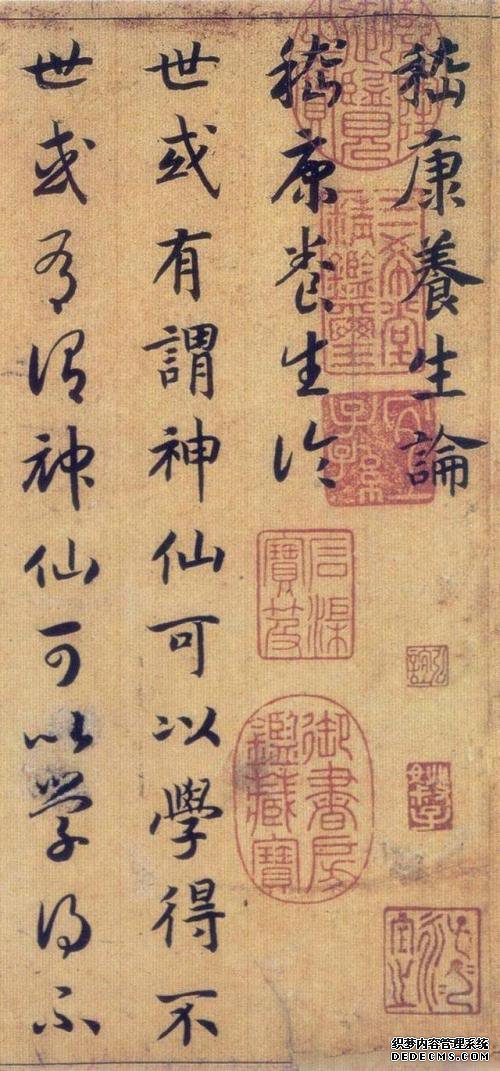 嵇康養生論
嵇康養生论
世或有謂神仙可以學得不
世或有谓神仙可以学得不
石渠寶笈
御書房鑑藏寶
三希堂精鑑璽
宜子孫
织梦内容管理系统
DEDECMS.COM